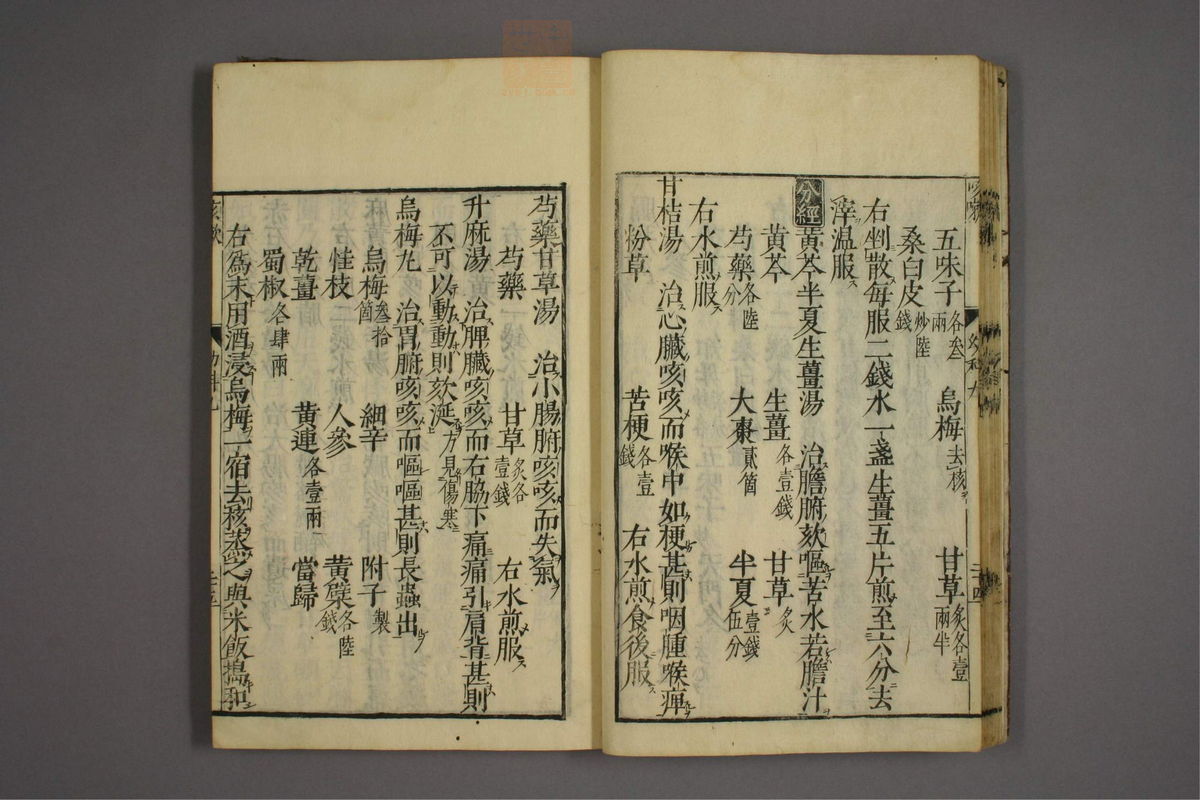 五味子各叁兩 烏梅去核 甘草炙各壹兩半
桑白皮炒陸錢
右剉散每服二錢水一盞生薑五片煎至六分去
滓温服
分經 黃芩半夏生薑湯 治膽腑欬嘔苦水若膽汁
黃芩 生薑各壹錢 甘草炙
芍藥各陸分 大棗貳箇 半夏壹錢伍分
右水煎服
甘桔湯 治心臓咳咳而喉中如梗甚則咽腫喉痺
粉草 苦梗各壹錢 右水煎食後服
芍藥甘草湯 治小腸腑咳咳而失氣
芍藥 甘草炙各壹錢 右水煎服
升麻湯 治脾臓咳咳而右脇下痛痛引肩背甚則
不可以動動則欬涎方見傷寒
烏梅丸 治胃腑咳咳而嘔嘔甚則長蟲出
烏梅叁拾箇 細辛 附子製
桂枝 人參 黃檗各陸錢
乾薑 黃連各壹兩 當歸
蜀椒各肆兩
右爲末用酒浸烏梅一宿去核蒸之與米飯搗和